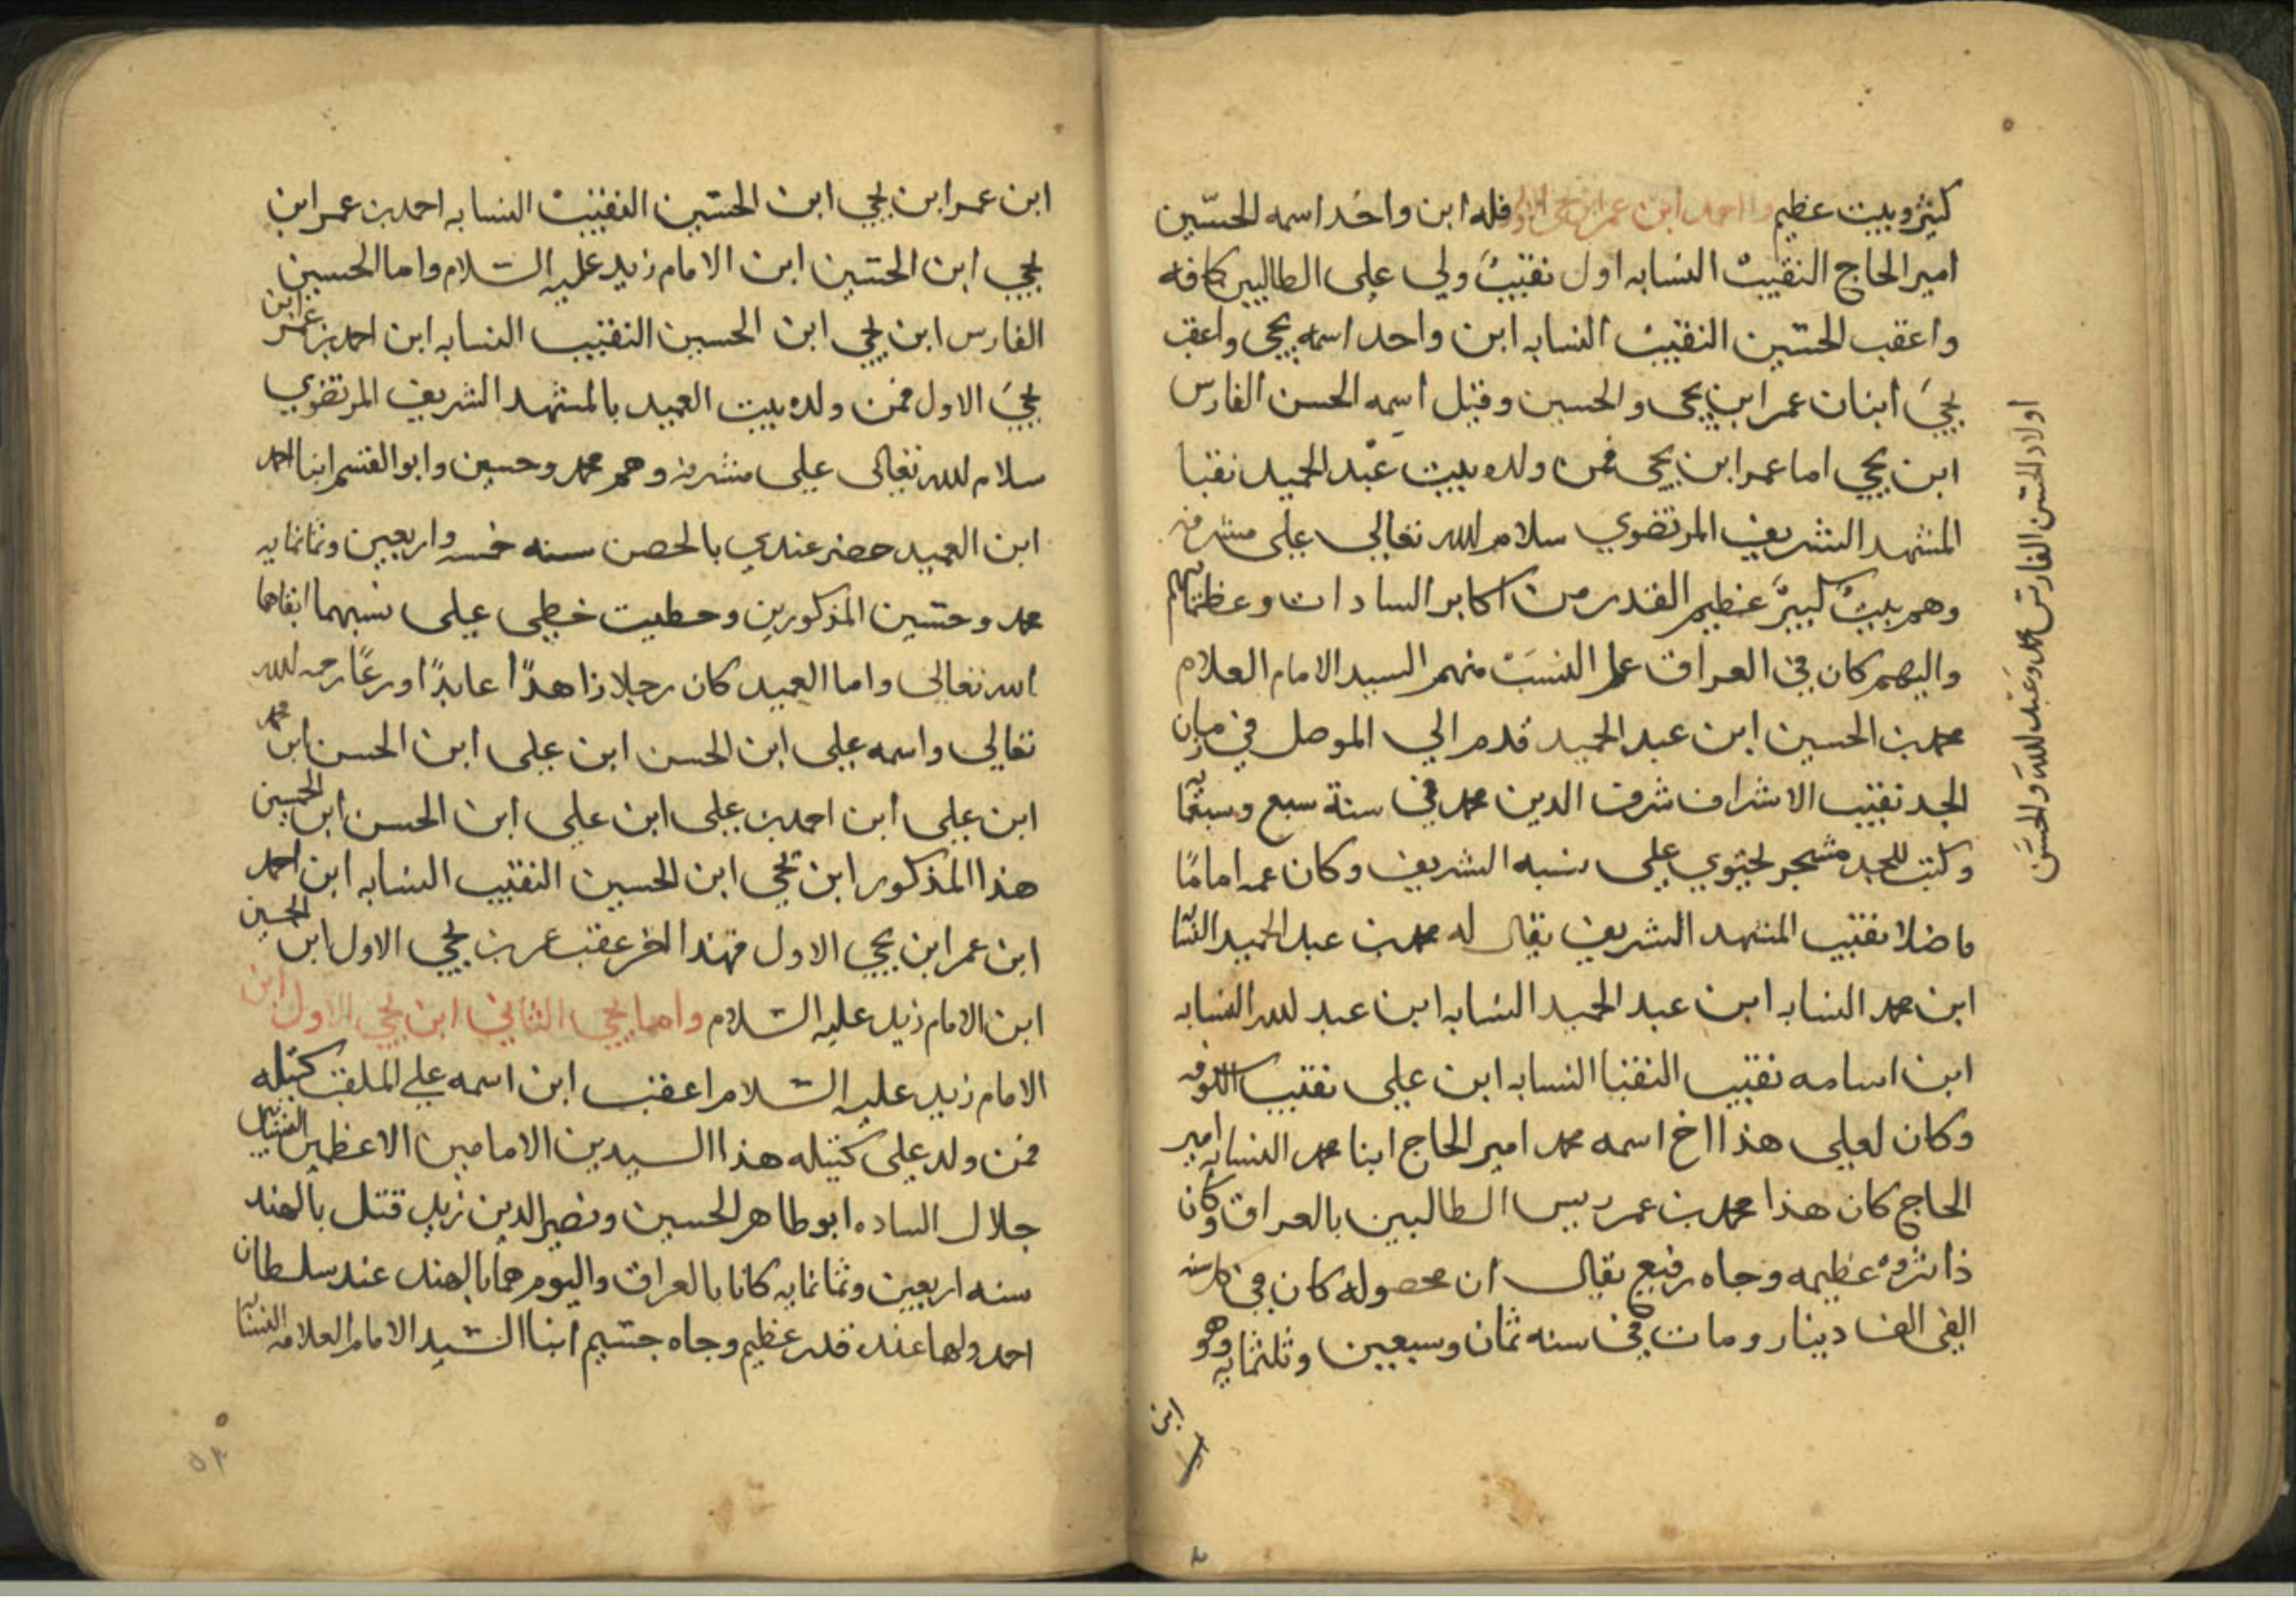 كثير وبيت عظيم واما احمد ابن عمر ابن يحيى الاول فله ابن واحد اسمه الحسين
امير الحاج النقيب النسابه اول نقيب ولي على الطالبين كافه
واعقب الحسين النقيب النسابه ابن واحد اسمه يحيى واعقب
يحيى ابنان عمر ابن يحيى والحسين وقيل اسمه الحسن الفارس
ابن يحيى اما عمر ابن يحيى فمن ولده بيت عبد الحميد نقبا
المشهد الشريف المرتضوي سلام الله تعالى على مشرفه
وهم بيت كبير عظيم القدر من اكابر السادات وعظمائهم
واليهم كان في العراق علم النسب منهم السيد الامام العلام
محمد بن الحسين ابن عبد الحميد قدم الى الموصل في زمان
الجد نقيب الاشراف شرف الدين محمد في سنة سبع وسبعما
وكتب للجد مشجر يحتوي على نسبه الشريف وكان عمه اماما
فاضلا نقيب المشهد الشريف يقال له محمد بن عبد الحميد النسابه
ابن محمد النسابه ابن عبد الحميد النسابه ابن عبد الله النسابه
ابن اسامه نقيب النقبا النسابه ابن علي نقيب الكوفه
وكان لعلي هذا اخ اسمه محمد امير الحاج ابنا محمد النسابه امير
الحاج كان هذا محمد بن عمر رييس الطالبين بالعراق وكان
ذا ثروة عظيمه وجاه رفيع يقال ان محصوله كان في كل سنه
الفي الف دينار ومات في سنه ثمان وسبعين وثلثمايه وهو
ابن
اولاد الحسن الفارس محمد وعبد الله والحسن
ابن عمر ابن يحيى ابن الحسين النقيب النسابه احمد بن عمر ابن
يحيى ابن الحسين ابن الامام زيد عليه السلام واما الحسين
الفارس ابن يحيى ابن الحسين النقيب النسابه ابن احمد بن عمر ابن
يحيى الاول فمن ولده بيت العميد بالمشهد الشريف المرتضوي
سلام الله تعالى على مشرفه وهم محمد وحسين وابو القسم ابنا احمد
ابن العميد حضر عندي بالحصن سنه خمسه واربعين وثمانمايه
محمد وحسين المذكورين وحطيت خطي على نسبهما ابقاهما
الله تعالى واما العميد كان رجلا زاهدا عابدا ورعا رحمه الله
تعالى واسمه علي ابن الحسن ابن علي ابن الحسن ابن محمد
ابن علي ابن احمد بن علي ابن علي ابن الحسن ابن الحسين
هذا المذكور ابن يحيى ابن الحسين النقيب النسابه ابن احمد
ابن عمر ابن يحيى الاول فهذا اخر عقب عمر بن يحيى الاول ابن الحسين
ابن الامام زيد عليه السلام واما يحيى الثاني ابن يحيى الاول ابن
الامام زيد عليه السلام اعقب ابن اسمه علي الملقب كتيله
فمن ولد علي كتيله هذا السيدين الامامين الاعظمين
جلال الساده ابو طاهر الحسين ونصير الدين زيد قتل بالهند
سنه اربعين وثمانمايه كانا بالعراق واليوم هما بالهند عند سلطان
احمد ولهما عنده قدر عظيم وجاه جسيم ابنا السيد الامام العلامه النسابه